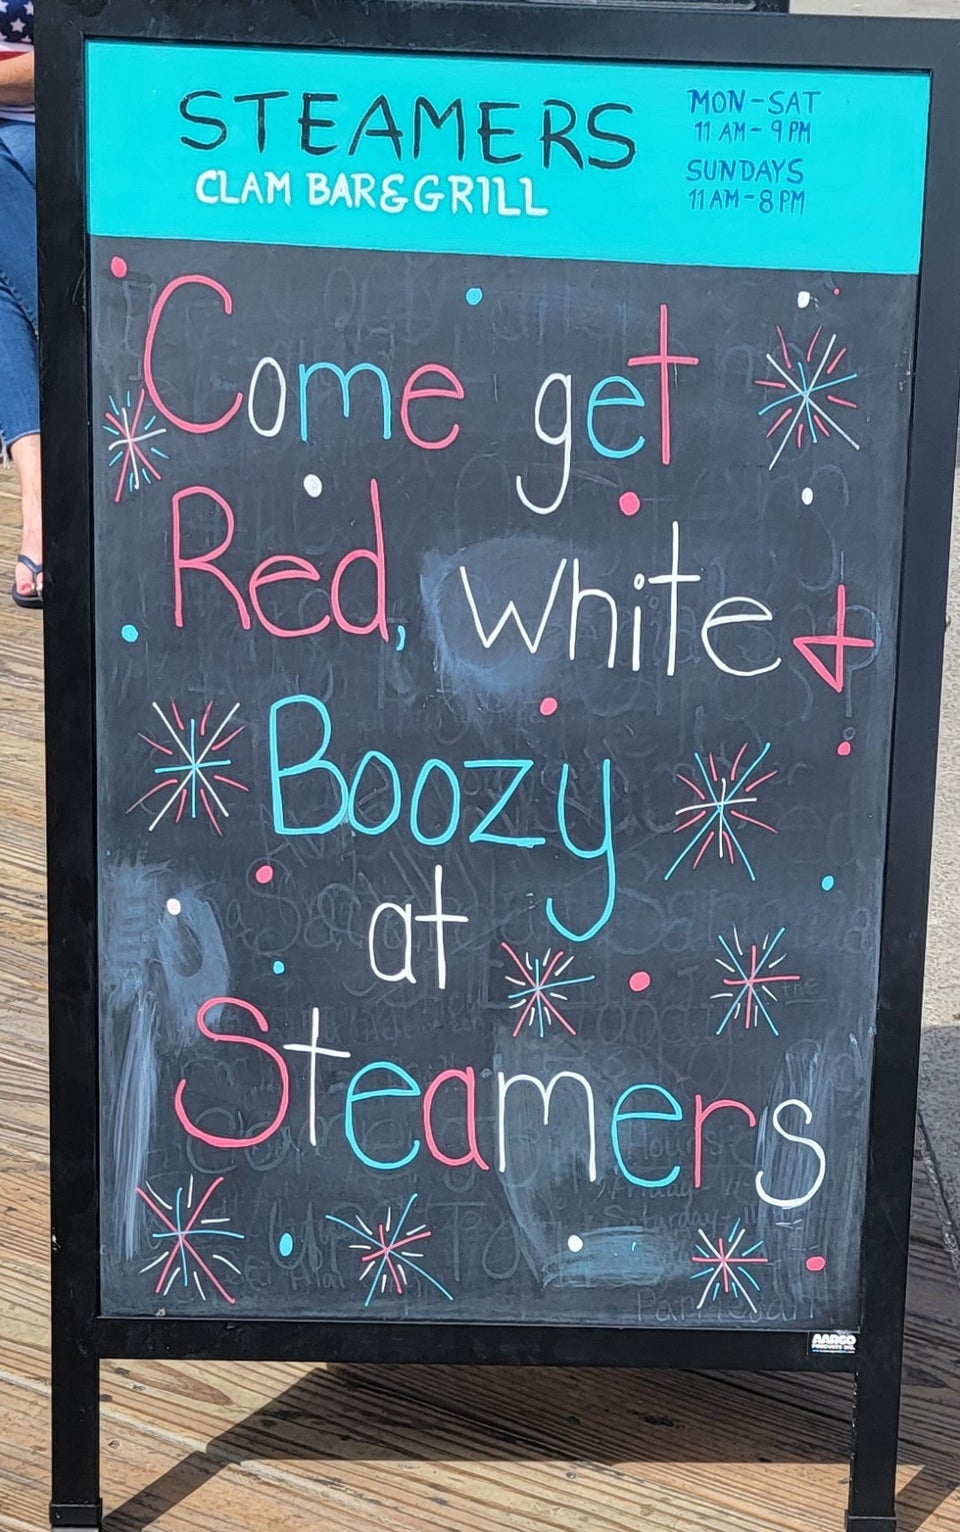 STEAMERS
CLAM BAR & GRILL
MON-SAT
11 AM - 9 PM
SUNDAYS
11 AM - 8 PM
Come get
Red, white +
Boozy
at
Steamers
AARCO
PRODUCTS INC.